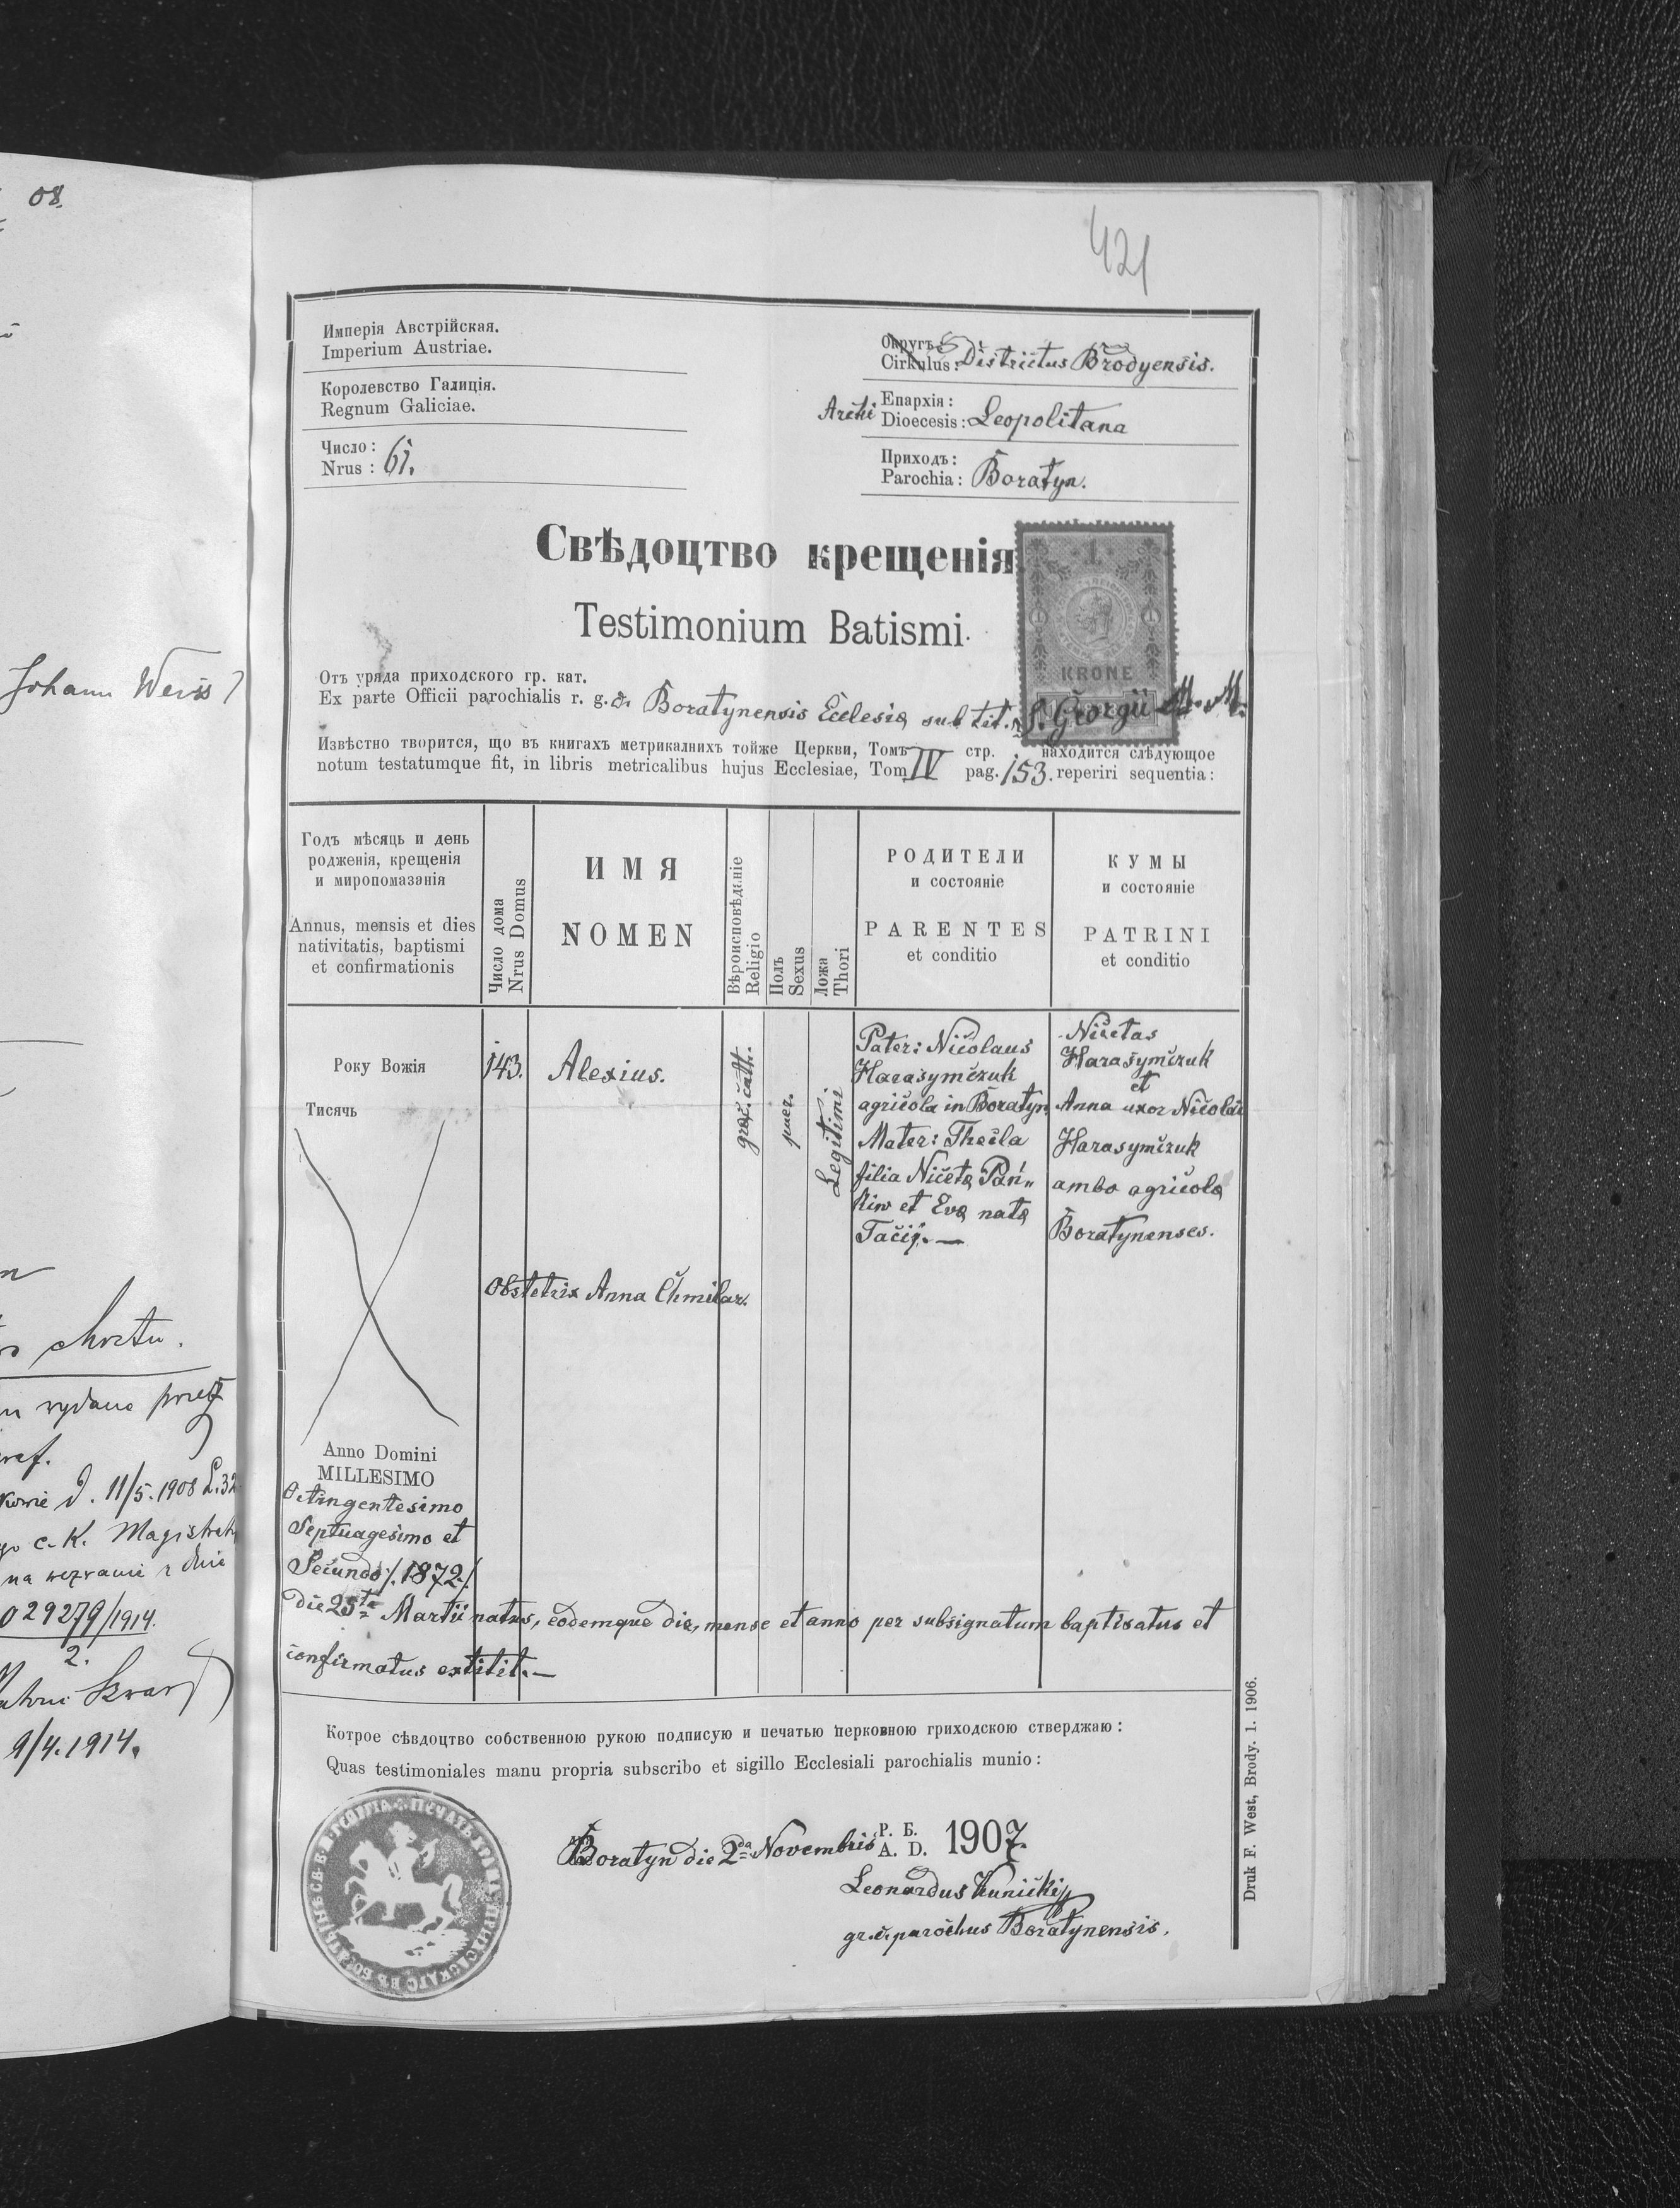 08.
Johann Weiss
chrztu.
wydane przez
d. 11/5.1908 L.32
c. K. Magistrat
na wezwanie z dnia
29279/1914.
2.
9/4.1914.
421
Имперія Австрійская.
Imperium Austriae.
Королевство Галиція.
Regnum Galiciae.
Число:
Nrus: 61.
Округъ:
Cirkulus: Districtus Brodyensis.
Епархія:
Archi Dioecesis: Leopolitana
Приходъ:
Parochia: Boratyn.
Свѣдоцтво крещенія
Testimonium Batismi.
1
KRONE
Отъ уряда приходского гр. кат.
Ex parte Officii parochialis r. g. c. Boratynensis Ecclesię sub tit. S. Georgii M. M.
Извѣстно творится, що въ книгахъ метрикалнихъ тойже Церкви, Томъ стр. находится слѣдующое
notum testatumque fit, in libris metricalibus hujus Ecclesiae, Tom IV pag. 153. reperiri sequentia:
Годъ мѣсяць и день
родженія, крещенія
и миропомазанія
Annus, mensis et dies
nativitatis, baptismi
et confirmationis
Число дома
Nrus Domus
ИМЯ
NOMEN
Вѣроисповѣдыніе
Religio
Полъ
Sexus
Ложа
Thori
РОДИТЕЛИ
и состояніе
PARENTES
et conditio
КУМЫ
и состояніе
PATRINI
et conditio
Року Вожія
Тисячь
143.
Alexius.
graec. cath.
puer.
Legitimi
Pater: Nicolaus
Harasymczuk
agricola in Boratyn
Mater: Thecla
filia Nicetę Pań„
kiw et Evę natę
Tacij. —
Nicetas
Harasymczuk
et
Anna uxor Nicolai
Harasymczuk
ambo agricolę
Boratynenses.
Obstetrix Anna Chmilar.
Anno Domini
MILLESIMO
Octingentesimo
Septuagesimo et
Secundo /. 1872 ./
die 25ta Martii natus, eodemque die, mense et anno per subsignatum baptisatus et
confirmatus extitit. —
Котрое сѣвдоцтво собственною рукою подписую и печатью церковною гриходскою стверджаю:
Quas testimoniales manu propria subscribo et sigillo Ecclesiali parochialis munio:
Boratyn die 2da Novembris Р. Б. A. D. 1907.
Leonardus Kunicki
gr. c. parochus Boratynensis.
Druk F. West, Brody. 1. 1906.